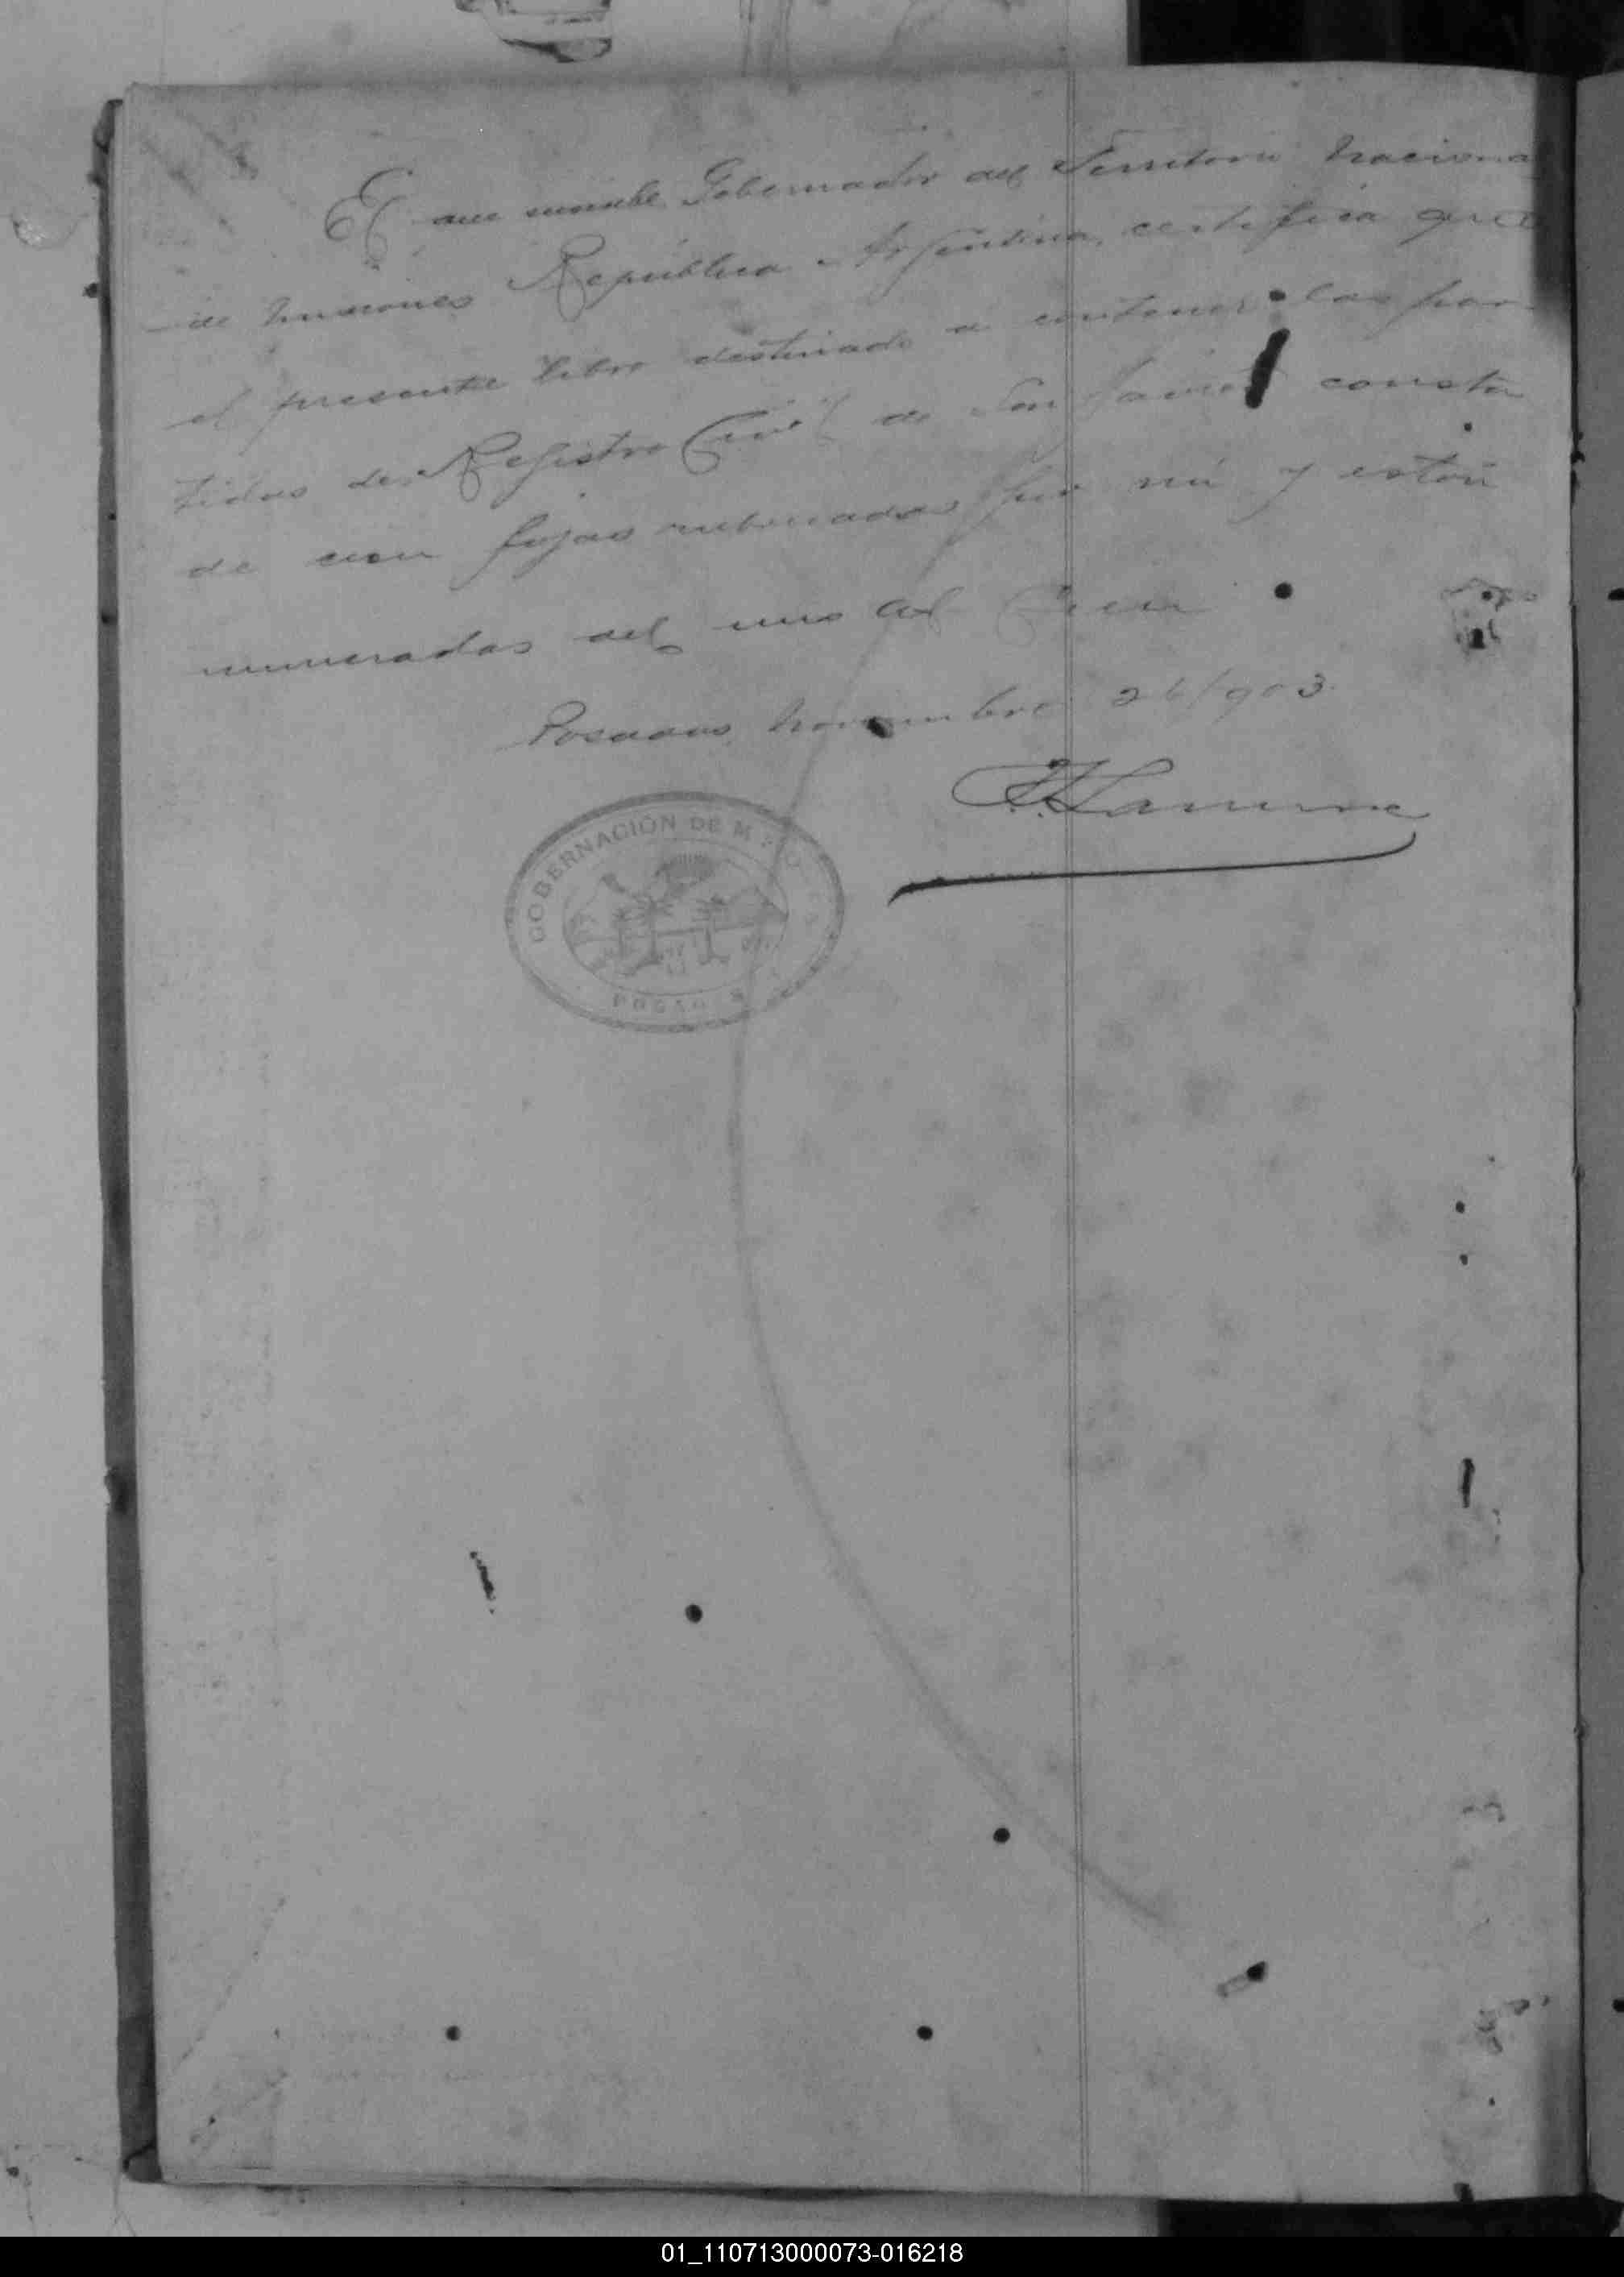 El que suscribe Gobernador del Territorio Naciona
de Misiones República Argentina, certifica que
el presente libro destinado a contener las par
tidas de Registro Civil de San Javier consta
de cien fojas rubricadas por mí y están
numeradas del uno al Cien
Posadas, Noviembre 26/903.
GOBERNACIÓN DE MISIONES
POSADAS
01_110713000073-016218